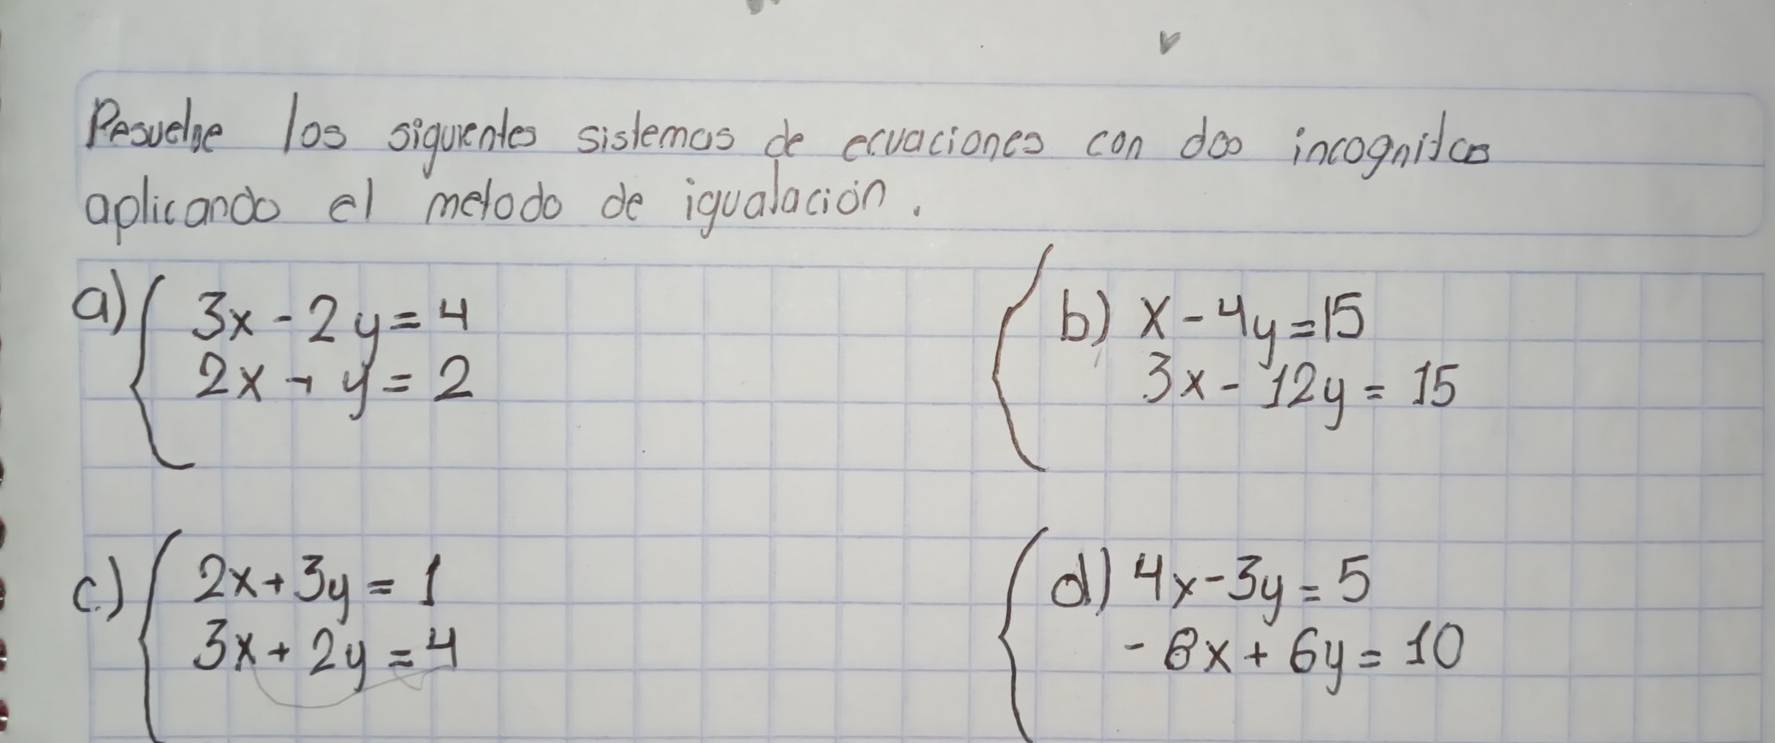 Resuelve los siguientes sistemas de ecuaciones con dos incognitas
aplicando el metodo de igualación.
a) 3x - 2y = 4
2x - y = 2
b) x - 4y = 15
3x - 12y = 15
c.) 2x + 3y = 1
3x + 2y = 4
d) 4x - 3y = 5
- 8x + 6y = 10